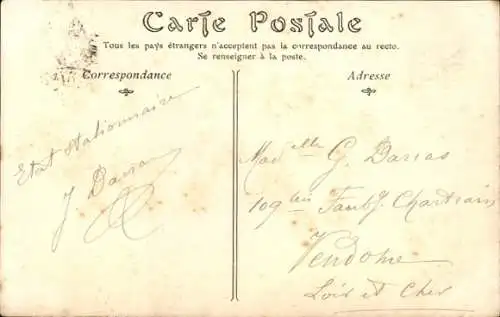 Carte Postale
Tous les pays étrangers n'acceptent pas la correspondance au recto.
Se renseigner à la poste.
Correspondance
Etat Stationnaire
J
Adresse
Mad elle G. Darras
109 bis Faubg Chartrain
Vendome
Loir et Cher